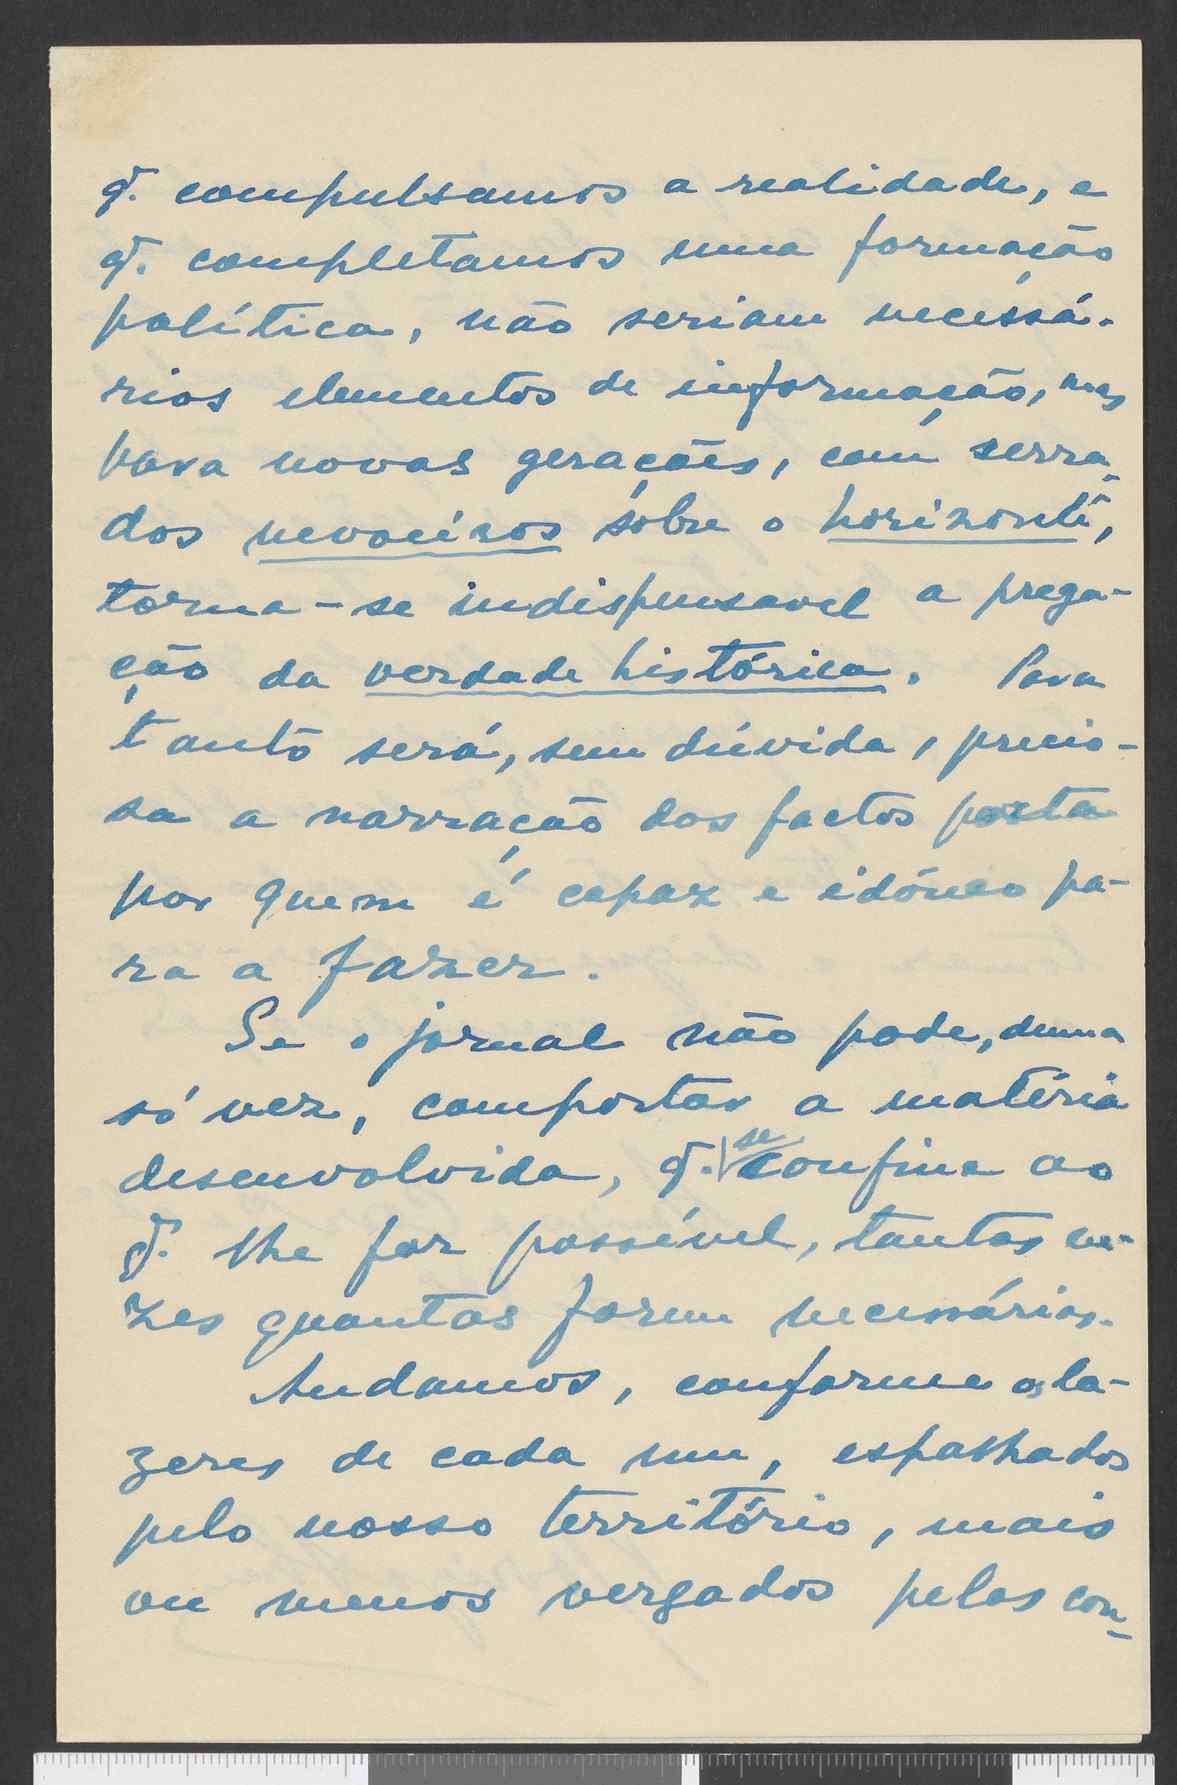 q. compulsamos a realidade, e
q. completamos uma formação
política, não seriam necessá-
rios elementos de informação, mas
para novas gerações, com serra-
dos nevoeiros sôbre o horizonte,
torna-se indispensavel a prega-
ção da verdade histórica. Para
tanto será, sem dúvida, precio-
sa a narração dos factos posta
por quem é capaz e idóneo pa-
ra a fazer.
Se o jornal não pode, duma
só vez, comportar a matéria
desenvolvida, q. se confine ao
q. lhe fôr possível, tantas ve-
zes quantas forem necessárias.
Andamos, conforme os la-
zeres de cada um, espalhados
pelo nosso território, mais
ou menos vergados pelas con-